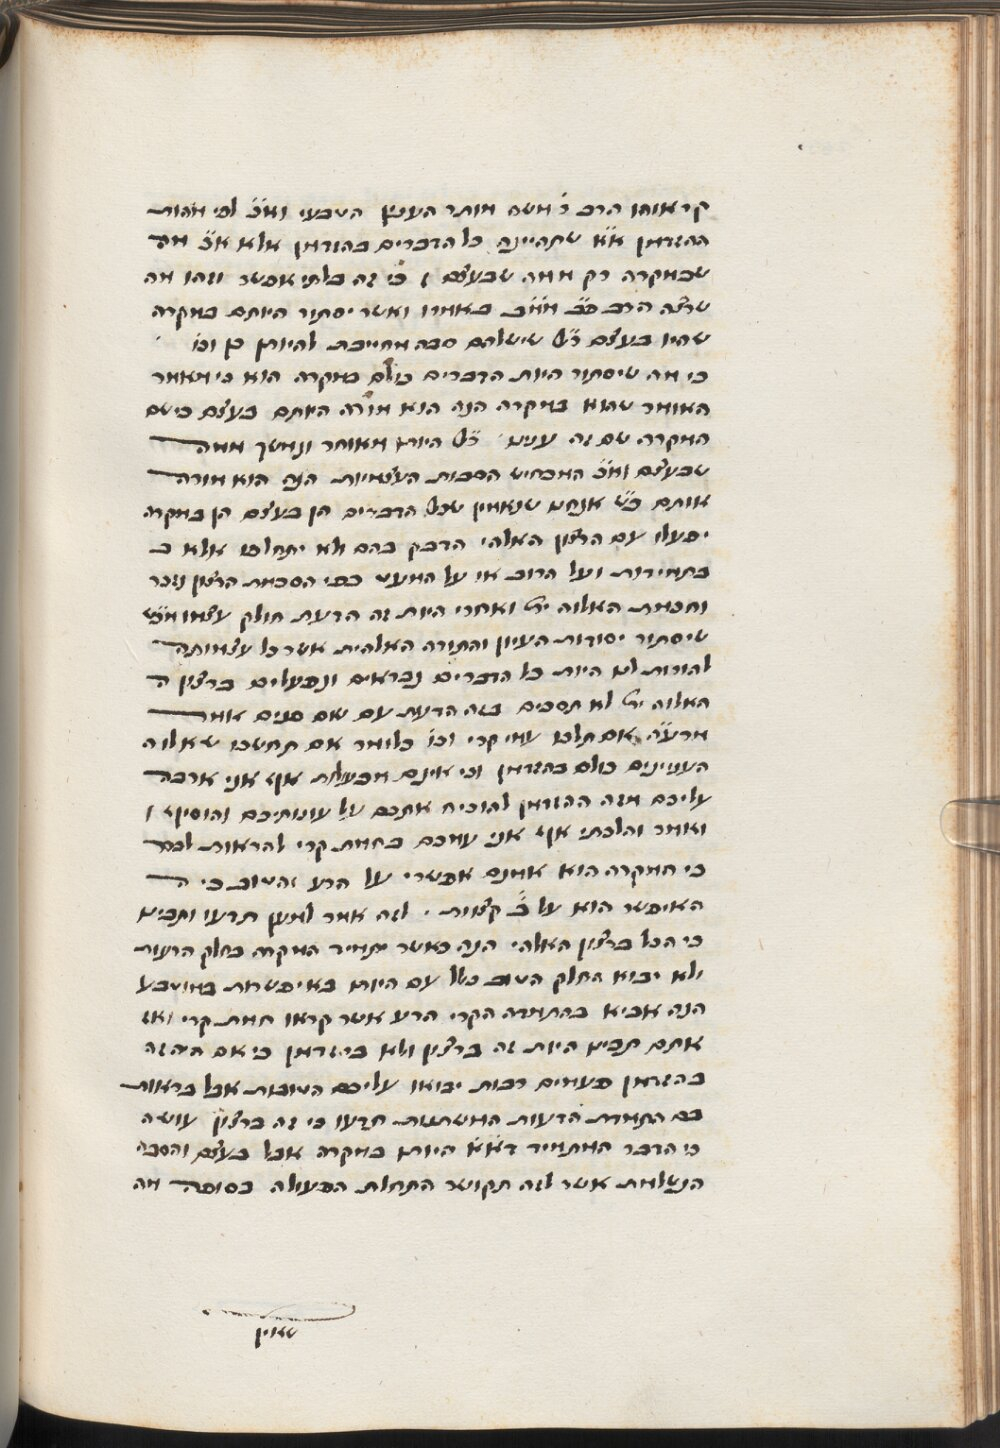 קראוהו הרב ר' משה מותר הענין הטבעי וא"כ לפי מהות
ההזדמן א"א שתהיינה כל הדברים בהזדמן אלא א"כ מה
שבמקרה רק ממה שבעצם כי זה בלתי אפשר וזהו מה
שרצה הרב באמרו ואשר יסתור היותם במקרה
שהיו בעצם ר"ל שישלהם סבה מחייבת להיותן כן וכו'
כי מה שיסתור היות הדברים כולם במקרה הוא כי מאמר
האומר שהוא במקרה הנה הוא מורה היותם בעצם כי שם
המקרה שם זה ענינו ר"ל היותו מאוחר ונמשך ממה
שבעצם וא"כ המכחיש הסבות העצמיות הנה הוא מורה
אותם כ"ש אנחנו שנאמין שכל הדברים הן בעצם הן במקרה
יפעלו עם הרצון האלהי הדבק בהם ולא יתחלפו אלא ב
בתמידות ועל הרוב או על המעט כפי הסכמת הרצון גזר
וחכמת האלוה ית' ואחרי היות זה הדעת חולק עצמו
שיסתור יסודות העיון והתורה האלהית אשר כל עצמותה
להורות לנו היות כל הדברים נבראים ונפעלים ברצון ה
האלוה ית' לא תסכים בזה הדעת עם שום פנים אמר
מרע"ה אם תלכו עמי קרי וכו' כלומר אם תחשבו שאלוה
הענינים כולם בהזדמן וכי אינם מפעולת אף אני ארבה
עליכם מזה ההזדמן להוכיח אתכם על עונותיכם והוסיף ו
ואמר והלכתי אף אני עמכם בחמת קרי להראות לכם
כי המקרה הוא אמנם אפשרי על הרע והטוב כי ה
האיפשר הוא על ב' קצוות לזה אמר למען תדעו ותבינו
כי הכל ברצון האלהי הנה כאשר יתמיד המקרה בחלק הרעות
ולא יבוא החלק הטוב כלל עם היותו באיפשרות במוטבע
הנה אביא בהתמדה הקרי הרע אשר קראו חמת קרי ואז
אתם תבינו היות זה ברצון ולא בהזדמן כי אם היה זה
בהזדמן פעמים רבות יבואו עליכם הטובות אבל בראות
כם התמדת הרעות המשתוות תדעו כי זה ברצון עושה
כי הדבר המתמיד דא"א היותו במקרה אבל בעצם והסבה
הנשלמת אשר לזה תקושר התחלת הפעולה בסופה מה
שאין